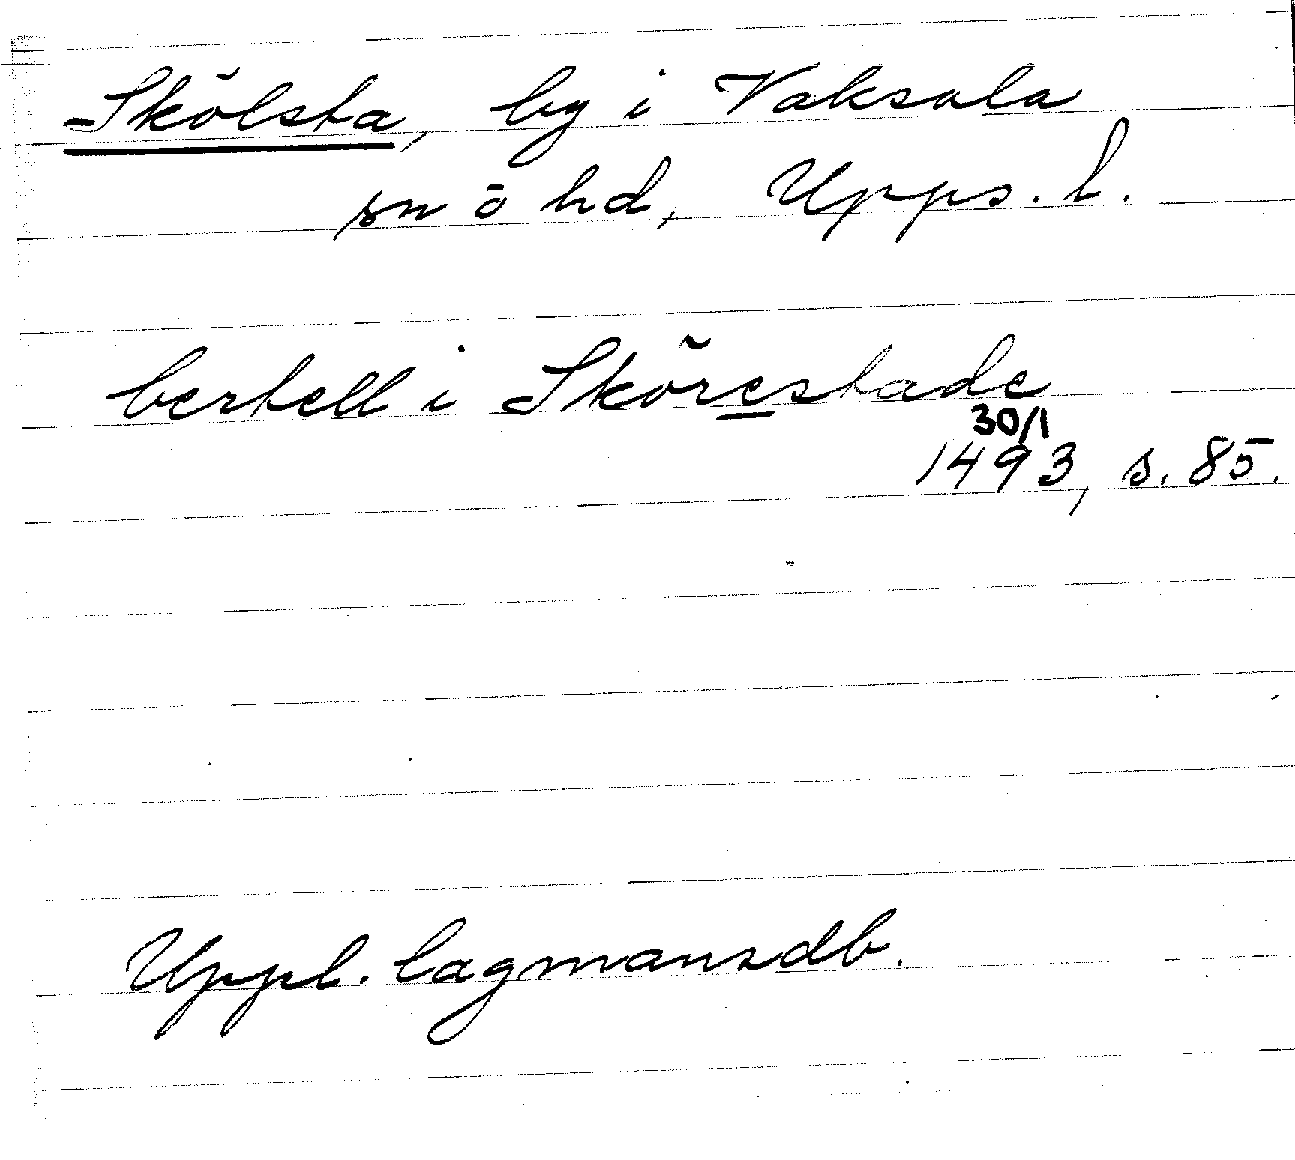 Skölsta, by i Vaksala
sn ō hd, Upps. l.
bertell i Skörestade
30/1
1493, s. 85.
Uppl. lagmansdb.